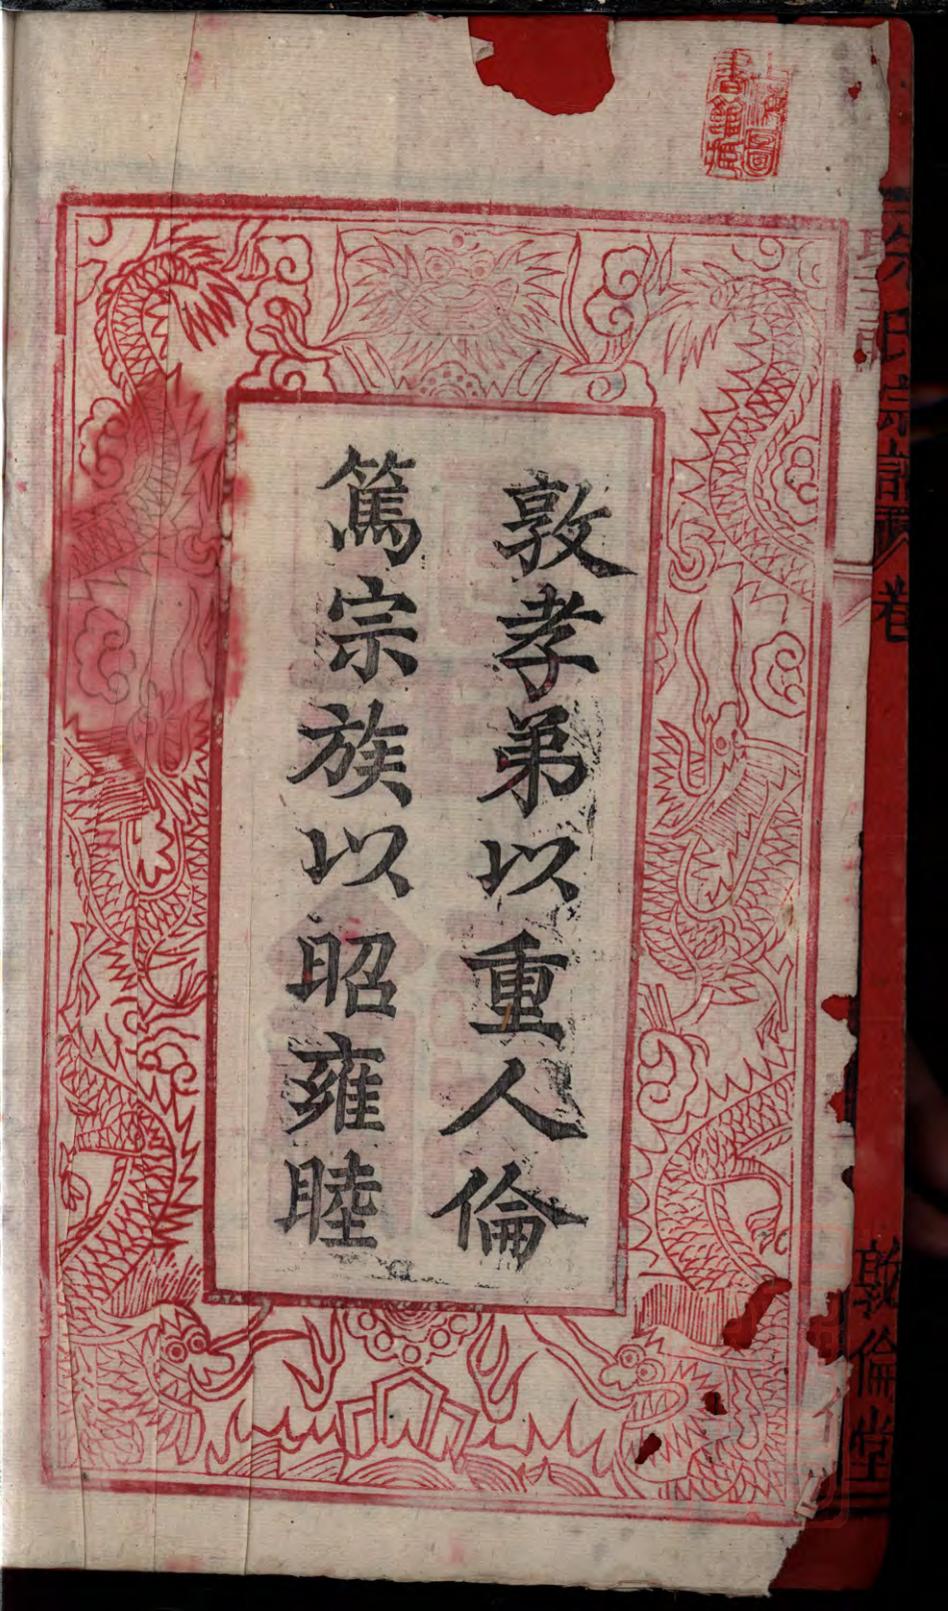 敦孝弟以重人倫
篤宗族以昭雍睦
氏宗譜
卷
敦倫堂
聖諭